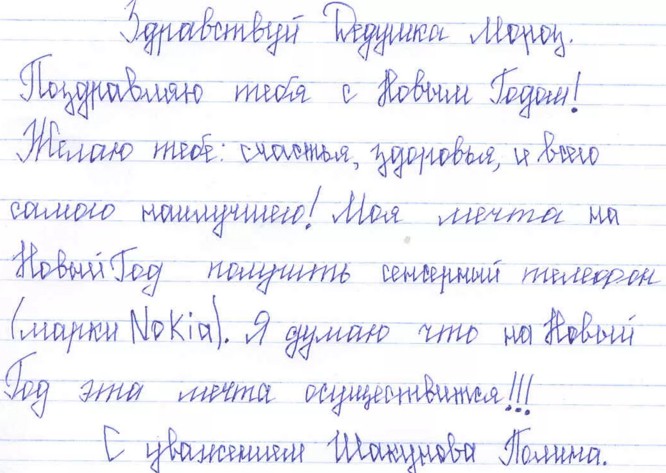 Здравствуй Дедушка Мороз.
Поздравляю тебя с Новым Годом!
Желаю тебе: счастья, здоровья, и всего
самого наилучшего! Моя мечта на
Новый Год получить сенсерный телефон
(марки NoKia). Я думаю что на Новый
Год эта мечта осуществится!!!
С уважением Шакунова Полина.